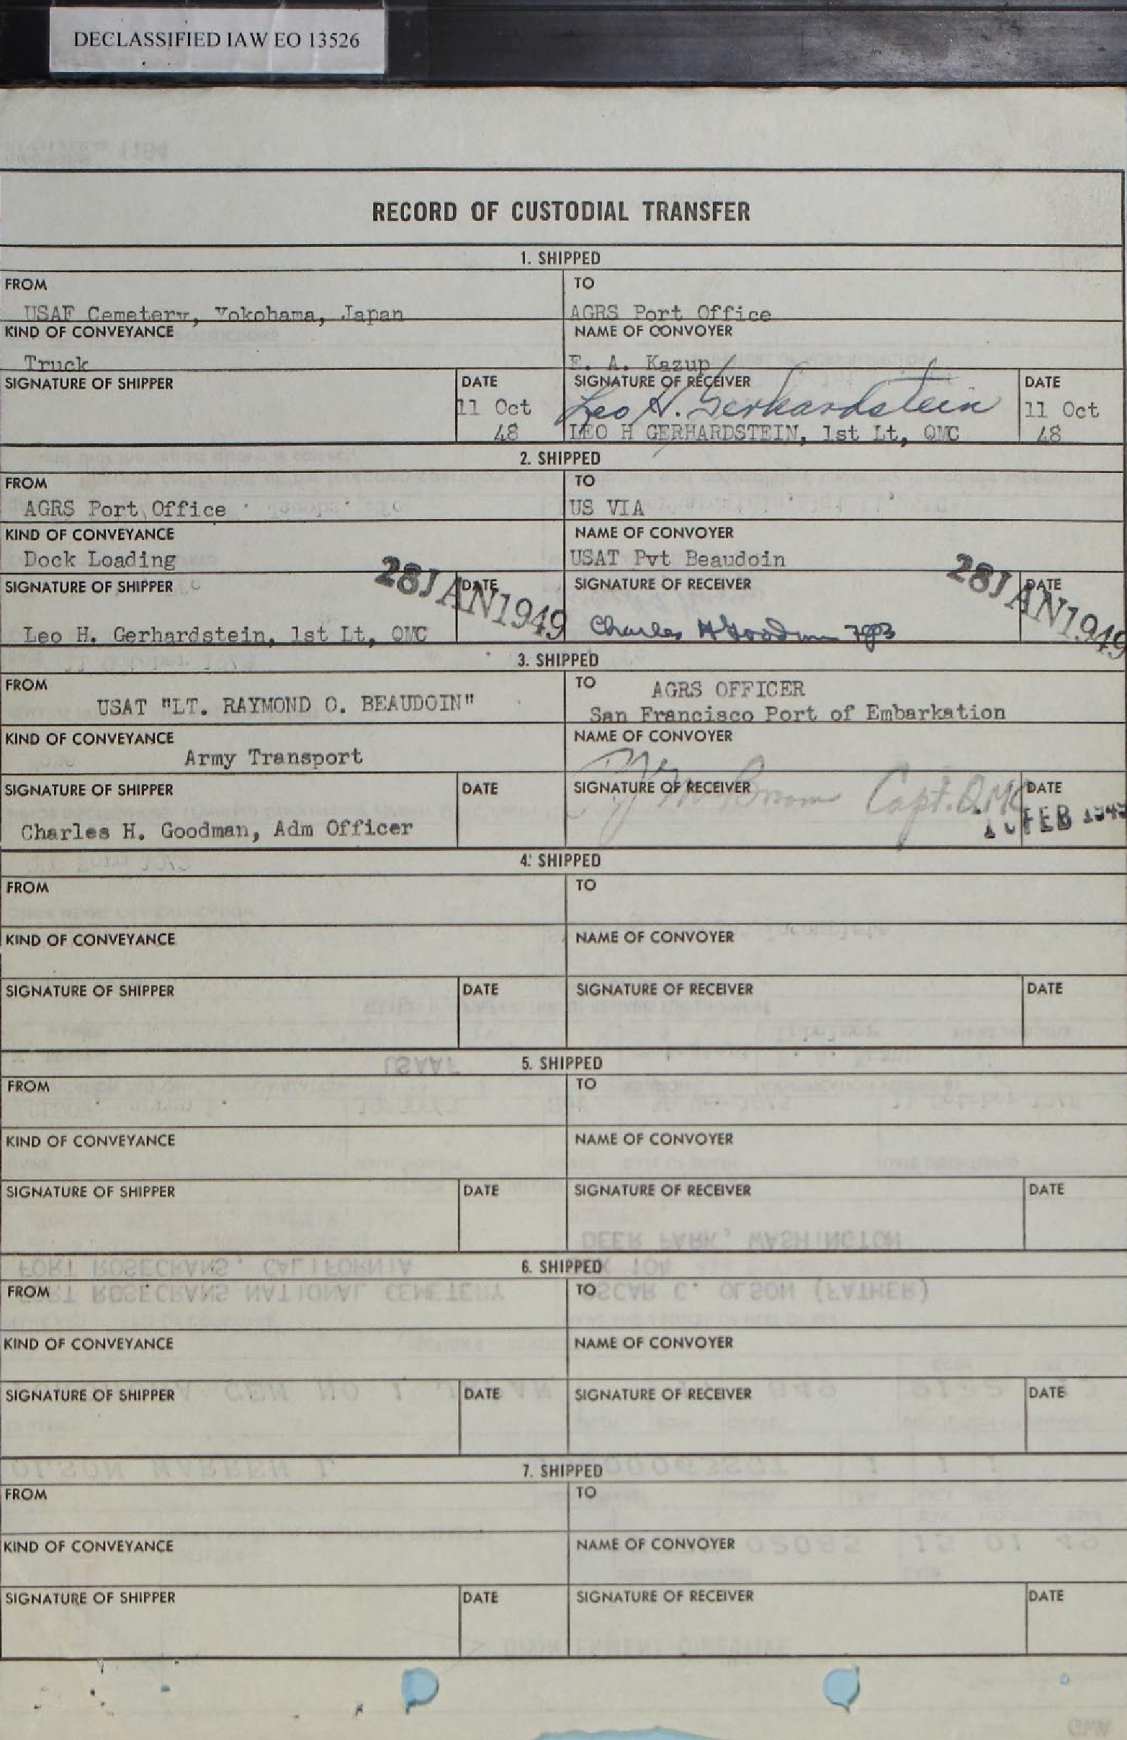 DECLASSIFIED IAW EO 13526
RECORD OF CUSTODIAL TRANSFER
1. SHIPPED
FROM
USAF Cemetery, Yokohama, Japan
TO
AGRS Port Office
KIND OF CONVEYANCE
Truck
NAME OF CONVOYER
E. A. Kazup
SIGNATURE OF SHIPPER
DATE
11 Oct
48
SIGNATURE OF RECEIVER
Leo H. Gerhardstein
LEO H GERHARDSTEIN, 1st Lt, QMC
DATE
11 Oct
48
2. SHIPPED
FROM
AGRS Port Office
TO
US VIA
KIND OF CONVEYANCE
Dock Loading
NAME OF CONVOYER
USAT Pvt Beaudoin
SIGNATURE OF SHIPPER
Leo H. Gerhardstein, 1st Lt, QMC
DATE
28 JAN 1949
SIGNATURE OF RECEIVER
Charles H Goodman
DATE
28 JAN 1949
3. SHIPPED
FROM
USAT "LT. RAYMOND O. BEAUDOIN"
TO
AGRS OFFICER
San Francisco Port of Embarkation
KIND OF CONVEYANCE
Army Transport
NAME OF CONVOYER
SIGNATURE OF SHIPPER
Charles H. Goodman, Adm Officer
DATE
SIGNATURE OF RECEIVER
Capt. QMC
DATE
FEB 1949
4. SHIPPED
FROM
TO
KIND OF CONVEYANCE
NAME OF CONVOYER
SIGNATURE OF SHIPPER
DATE
SIGNATURE OF RECEIVER
DATE
5. SHIPPED
FROM
TO
KIND OF CONVEYANCE
NAME OF CONVOYER
SIGNATURE OF SHIPPER
DATE
SIGNATURE OF RECEIVER
DATE
6. SHIPPED
FROM
TO
KIND OF CONVEYANCE
NAME OF CONVOYER
SIGNATURE OF SHIPPER
DATE
SIGNATURE OF RECEIVER
DATE
7. SHIPPED
FROM
TO
KIND OF CONVEYANCE
NAME OF CONVOYER
SIGNATURE OF SHIPPER
DATE
SIGNATURE OF RECEIVER
DATE